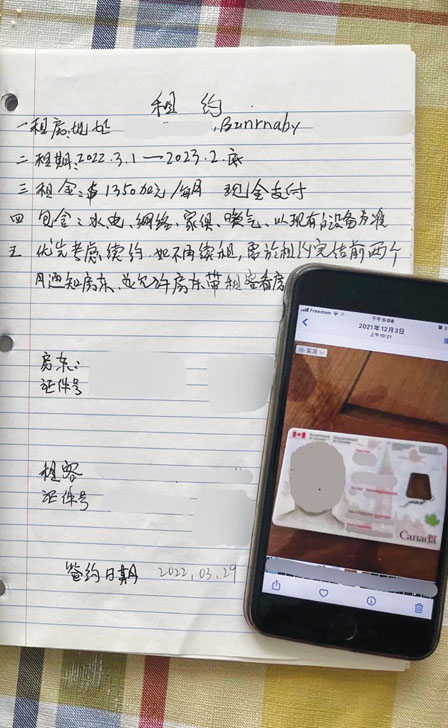 租约
一 租房地址 , Bunrnaby
二 租期:2022.3.1—2023.2.底
三 租金:$1350加元/每月 现金支付
四 包含:水电、网络、家俱、暖气、以现有的设备为准
五 优先考虑续约.如不再续租,需於租约完结前两个
月通知房东、并允许房东带租客看房
房东:
证件号
租客
证件号
签约日期 2022.03.29
Freedom 下午5:08
2021年12月3日
上午10:31
实况
Government of Canada
Canada